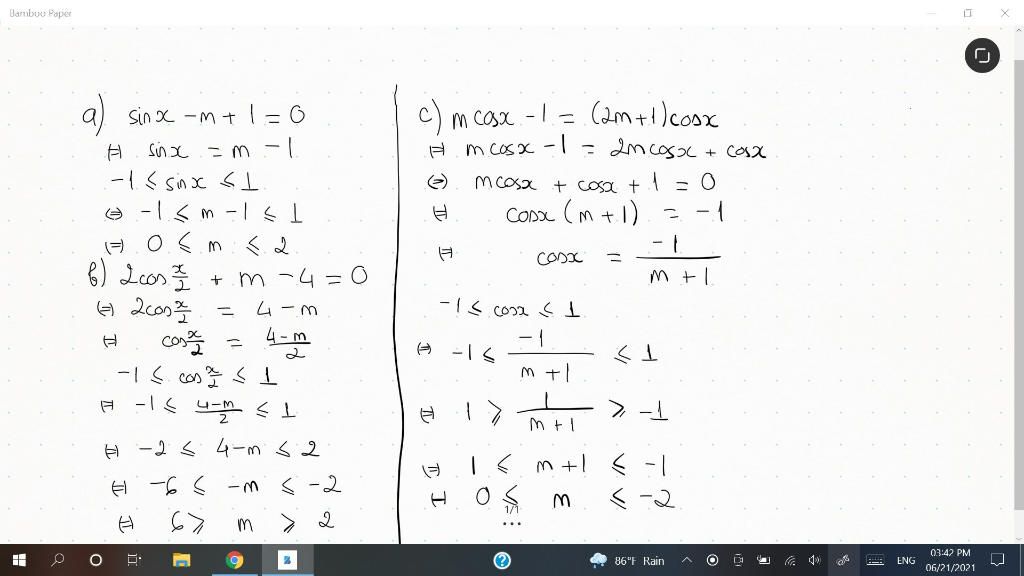 Bamboo Paper
a) sinx - m + 1 = 0
⇔ sinx = m - 1
-1 ⩽ sinx ⩽ 1
⇔ -1 ⩽ m - 1 ⩽ 1
⇔ 0 ⩽ m ⩽ 2
b) 2cos x/2 + m - 4 = 0
⇔ 2cos x/2 = 4 - m
⇔ cos x/2 = 4-m/2
-1 ⩽ cos x/2 ⩽ 1
⇔ -1 ⩽ 4-m/2 ⩽ 1
⇔ -2 ⩽ 4-m ⩽ 2
⇔ -6 ⩽ -m ⩽ -2
⇔ 6 ⩾ m ⩾ 2
c) mcosx - 1 = (2m+1)cosx
⇔ mcosx - 1 = 2mcosx + cosx
⇔ mcosx + cosx + 1 = 0
⇔ cosx (m + 1) = -1
⇔ cosx = -1/m + 1
-1 ⩽ cosx ⩽ 1
⇔ -1 ⩽ -1/m + 1 ⩽ 1
⇔ 1 ⩾ 1/m + 1 ⩾ -1
⇔ 1 ⩽ m + 1 ⩽ -1
⇔ 0 ⩽ m ⩽ -2
1/1
...
86°F Rain
ENG
03:42 PM
06/21/2021